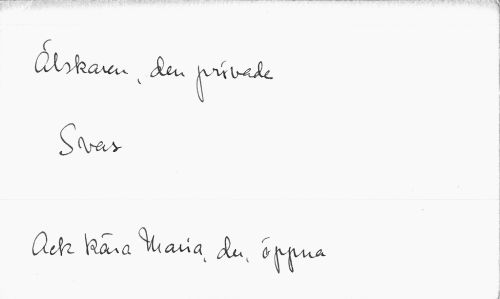 Älskaren, den prövade
Svar
Ack kära Maria, du, öppna